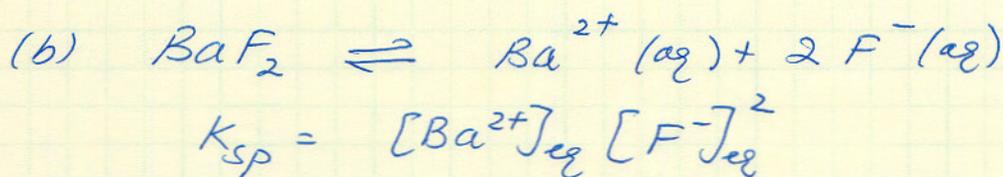 (b) BaF₂ ⇌ Ba²⁺ (aq) + 2 F⁻ (aq)
Ksp = [Ba²⁺]eq [F⁻]²eq